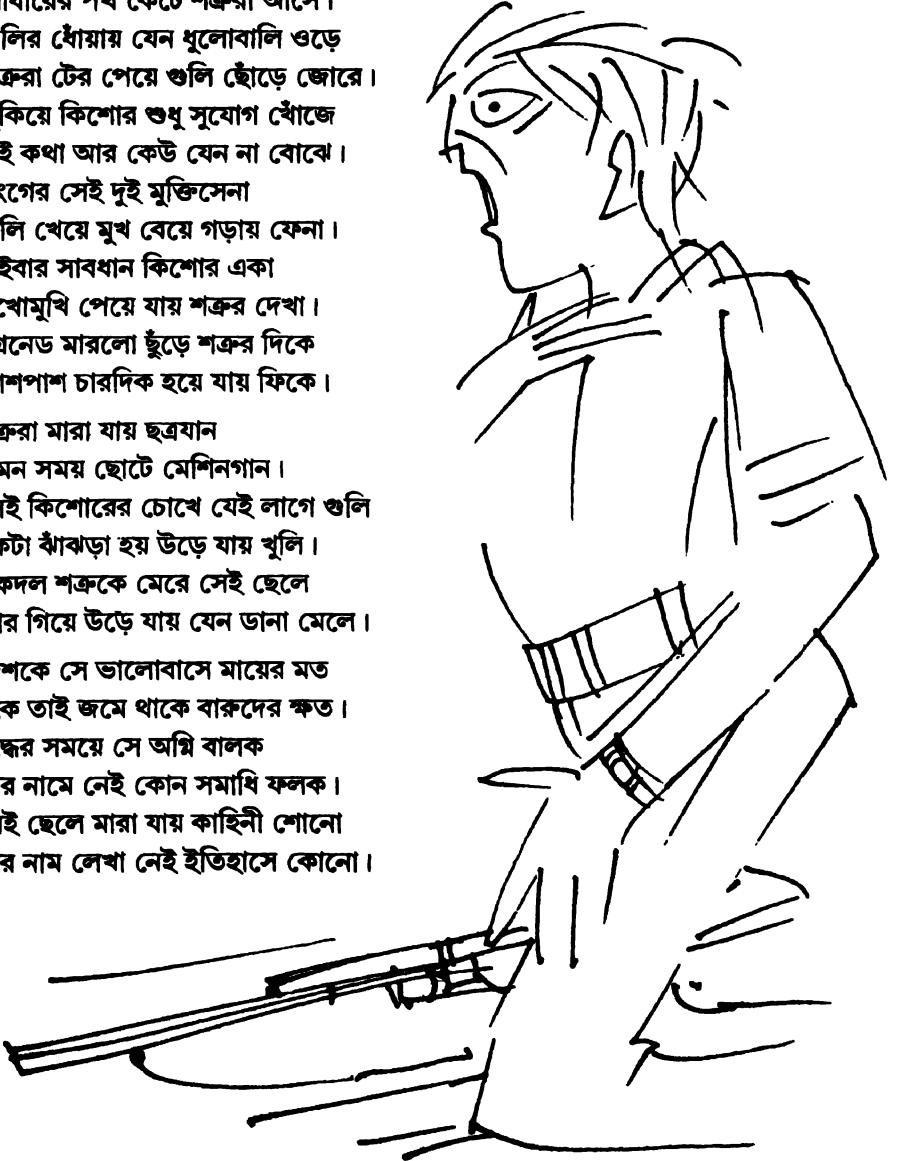 পথ কেটে শত্রুরা আসে।
ধোঁয়ায় যেন ধুলোবালি ওড়ে
টের পেয়ে গুলি ছোঁড়ে জোরে।
কিশোর শুধু সুযোগ খোঁজে
কথা আর কেউ যেন না বোঝে।
সেই দুই মুক্তিসেনা
খেয়ে মুখ বেয়ে গড়ায় ফেনা।
সাবধান কিশোর একা
পেয়ে যায় শত্রুর দেখা।
মারলো ছুঁড়ে শত্রুর দিকে
চারদিক হয়ে যায় ফিকে।
মারা যায় ছত্রযান
সময় ছোটে মেশিনগান।
কিশোরের চোখে যেই লাগে গুলি
ঝাঁঝড়া হয় উড়ে যায় খুলি।
শত্রুকে মেরে সেই ছেলে
গিয়ে উড়ে যায় যেন ডানা মেলে।
সে ভালোবাসে মায়ের মত
তাই জমে থাকে বারুদের ক্ষত।
সময়ে সে অগ্নি বালক
নামে নেই কোন সমাধি ফলক।
ছেলে মারা যায় কাহিনী শোনো
নাম লেখা নেই ইতিহাসে কোনো।